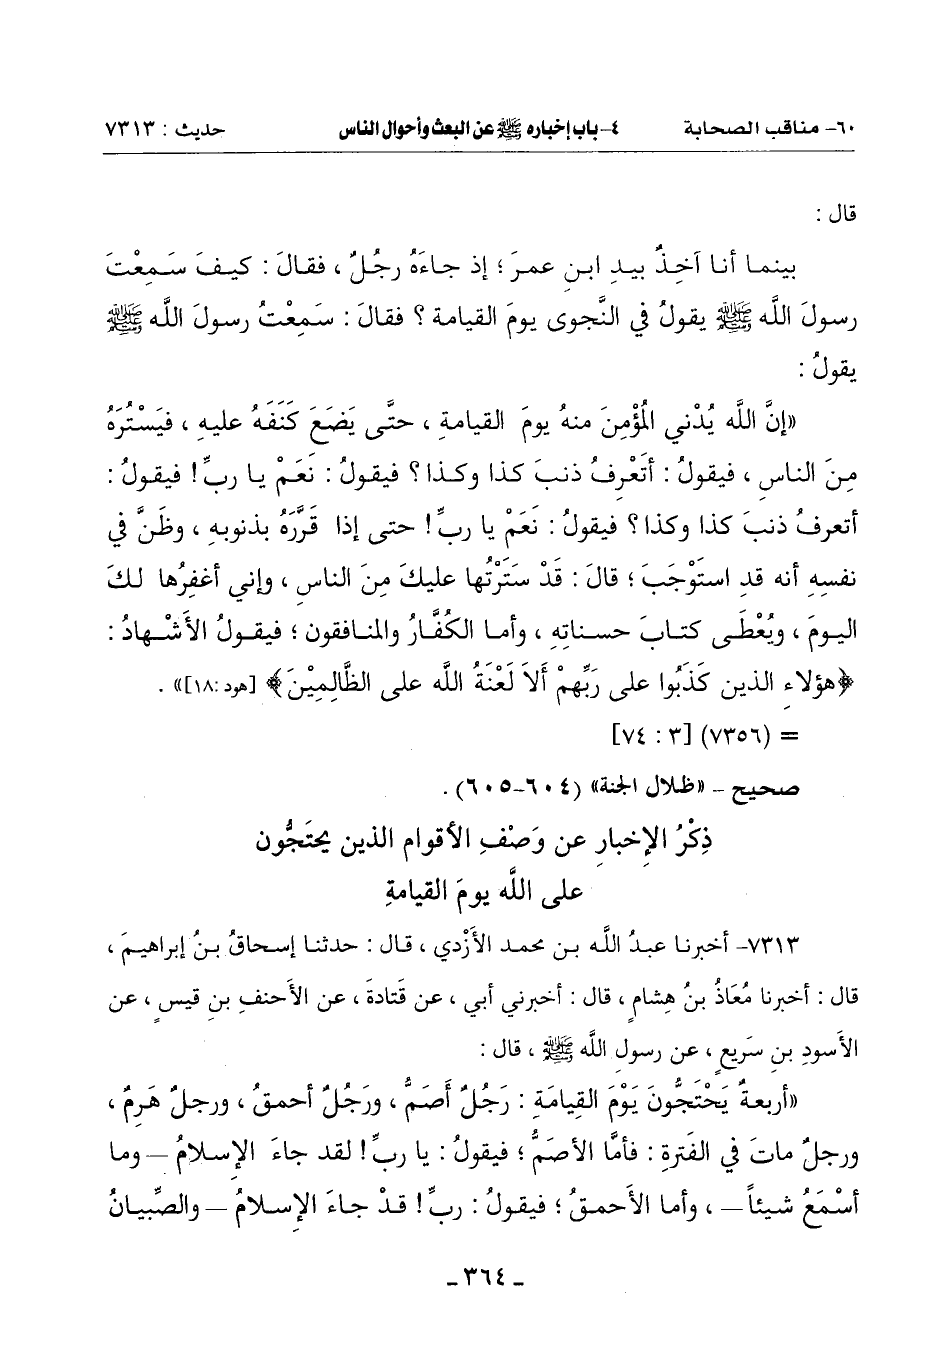 ٦٠- مناقب الصحابة ٤- باب إخباره ﷺ عن البعث وأحوال الناس حديث : ٧٣١٣
قال :
بينما أنا آخِذٌ بيدِ ابنِ عمرَ ؛ إذ جاءَهُ رجُلٌ ، فقالَ : كيفَ سَمِعْتَ
رسولَ اللَّه ﷺ يقولُ في النَّجوى يومَ القيامة ؟ فقالَ : سَمِعْتُ رسولَ اللَّه ﷺ
يقولُ :
«إنَّ اللَّه يُدْني المُؤْمِنَ منهُ يومَ القيامةِ ، حتَّى يَضَعَ كَنَفَهُ عليهِ ، فيَسْتُرَهُ
مِنَ الناسِ ، فيقولُ : أتَعْرِفُ ذنبَ كذا وكذا ؟ فيقولُ : نَعَمْ يا ربِّ ! فيقولُ :
أتعرفُ ذنبَ كذا وكذا ؟ فيقولُ : نَعَمْ يا ربِّ ! حتى إذا قَرَّرَهُ بذنوبهِ ، وظَنَّ في
نفسِهِ أنه قدِ استَوْجَبَ ؛ قالَ : قَدْ سَتَرْتُها عليكَ مِنَ الناسِ ، وإني أغفِرُها لكَ
اليومَ ، ويُعْطَى كتابَ حسناتِهِ ، وأما الكُفَّارُ والمنافقون ؛ فيقولُ الأَشْهادُ :
﴿هؤلاءِ الذين كَذَبُوا على رَبِّهِمْ أَلاَ لَعْنَةُ اللَّه على الظَّالِمِيْنَ﴾ [هود:١٨]» .
= (٧٣٥٦) [٣ : ٧٤]
صحيح - «ظلال الجنة» (٦٠٤-٦٠٥) .
ذِكْرُ الإخبارِ عن وَصْفِ الأقوام الذين يحتَجُّون
على اللَّه يومَ القيامةِ
٧٣١٣- أخبرنا عبدُ اللَّه بن محمد الأَزْدي ، قال : حدثنا إسحاقُ بنُ إبراهيمَ ،
قال : أخبرنا مُعَاذُ بنُ هِشامٍ ، قال : أخبرني أبي ، عن قَتادةَ ، عن الأحنفِ بنِ قيسٍ ، عن
الأسودِ بنِ سَريعٍ ، عن رسولِ اللَّه ﷺ ، قال :
«أربعةٌ يَحْتَجُّونَ يَوْمَ القِيامَةِ : رَجُلٌ أَصَمُّ ، ورَجُلٌ أحمقُ ، ورجلٌ هَرِمٌ ،
ورجلٌ ماتَ في الفَترةِ : فأمَّا الأصَمُّ ؛ فيقولُ : يا ربِّ ! لقد جاءَ الإسلامُ – وما
أسْمَعُ شيئاً – ، وأما الأَحمقُ ؛ فيقولُ : ربِّ ! قدْ جاءَ الإسلامُ – والصِّبيانُ
- ٣٦٤ -